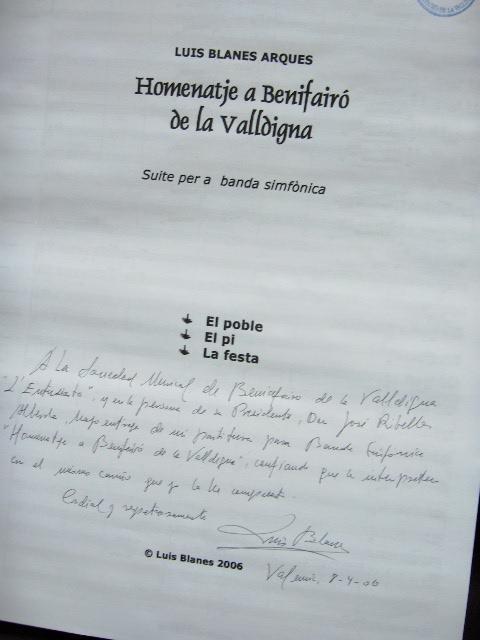 LUIS BLANES ARQUES
Homenatje a Benifairó
de la Valldigna
Suite per a banda simfònica
El poble
El pi
La festa
A La Sociedad Musical de Benifairo de la Valldigna
"L'Entusiasta", y en la persona de su Presidente, Don José Ribelles
Alberola, hago entrega de mi partitura para Banda Sinfónica
"Homenatje a Benifairó de la Valldigna", confiando que la interpreten
en el mismo cariño que yo la he compuesto.
Cordial y respetuosamente
Luis Blanes
© Luis Blanes 2006
Valencia, 8-4-06